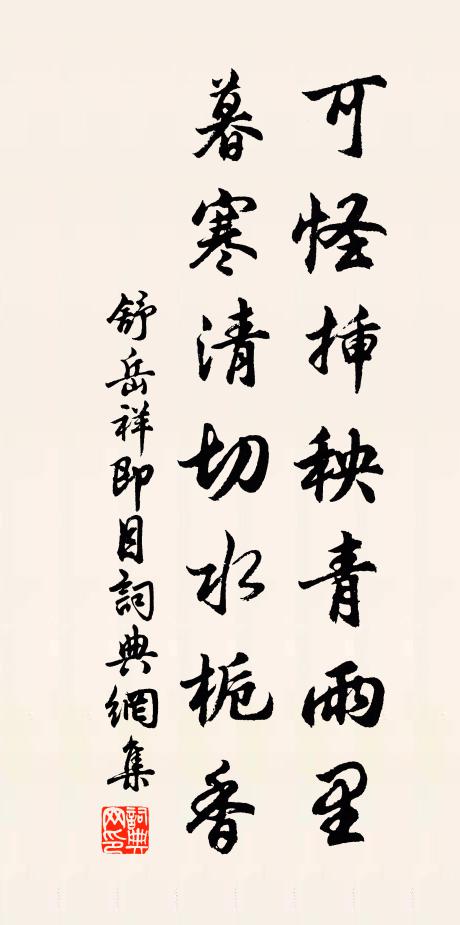 可怪插秧青雨里
暮寒清切水栀香
舒岳祥即目詞典網集
詞典網印